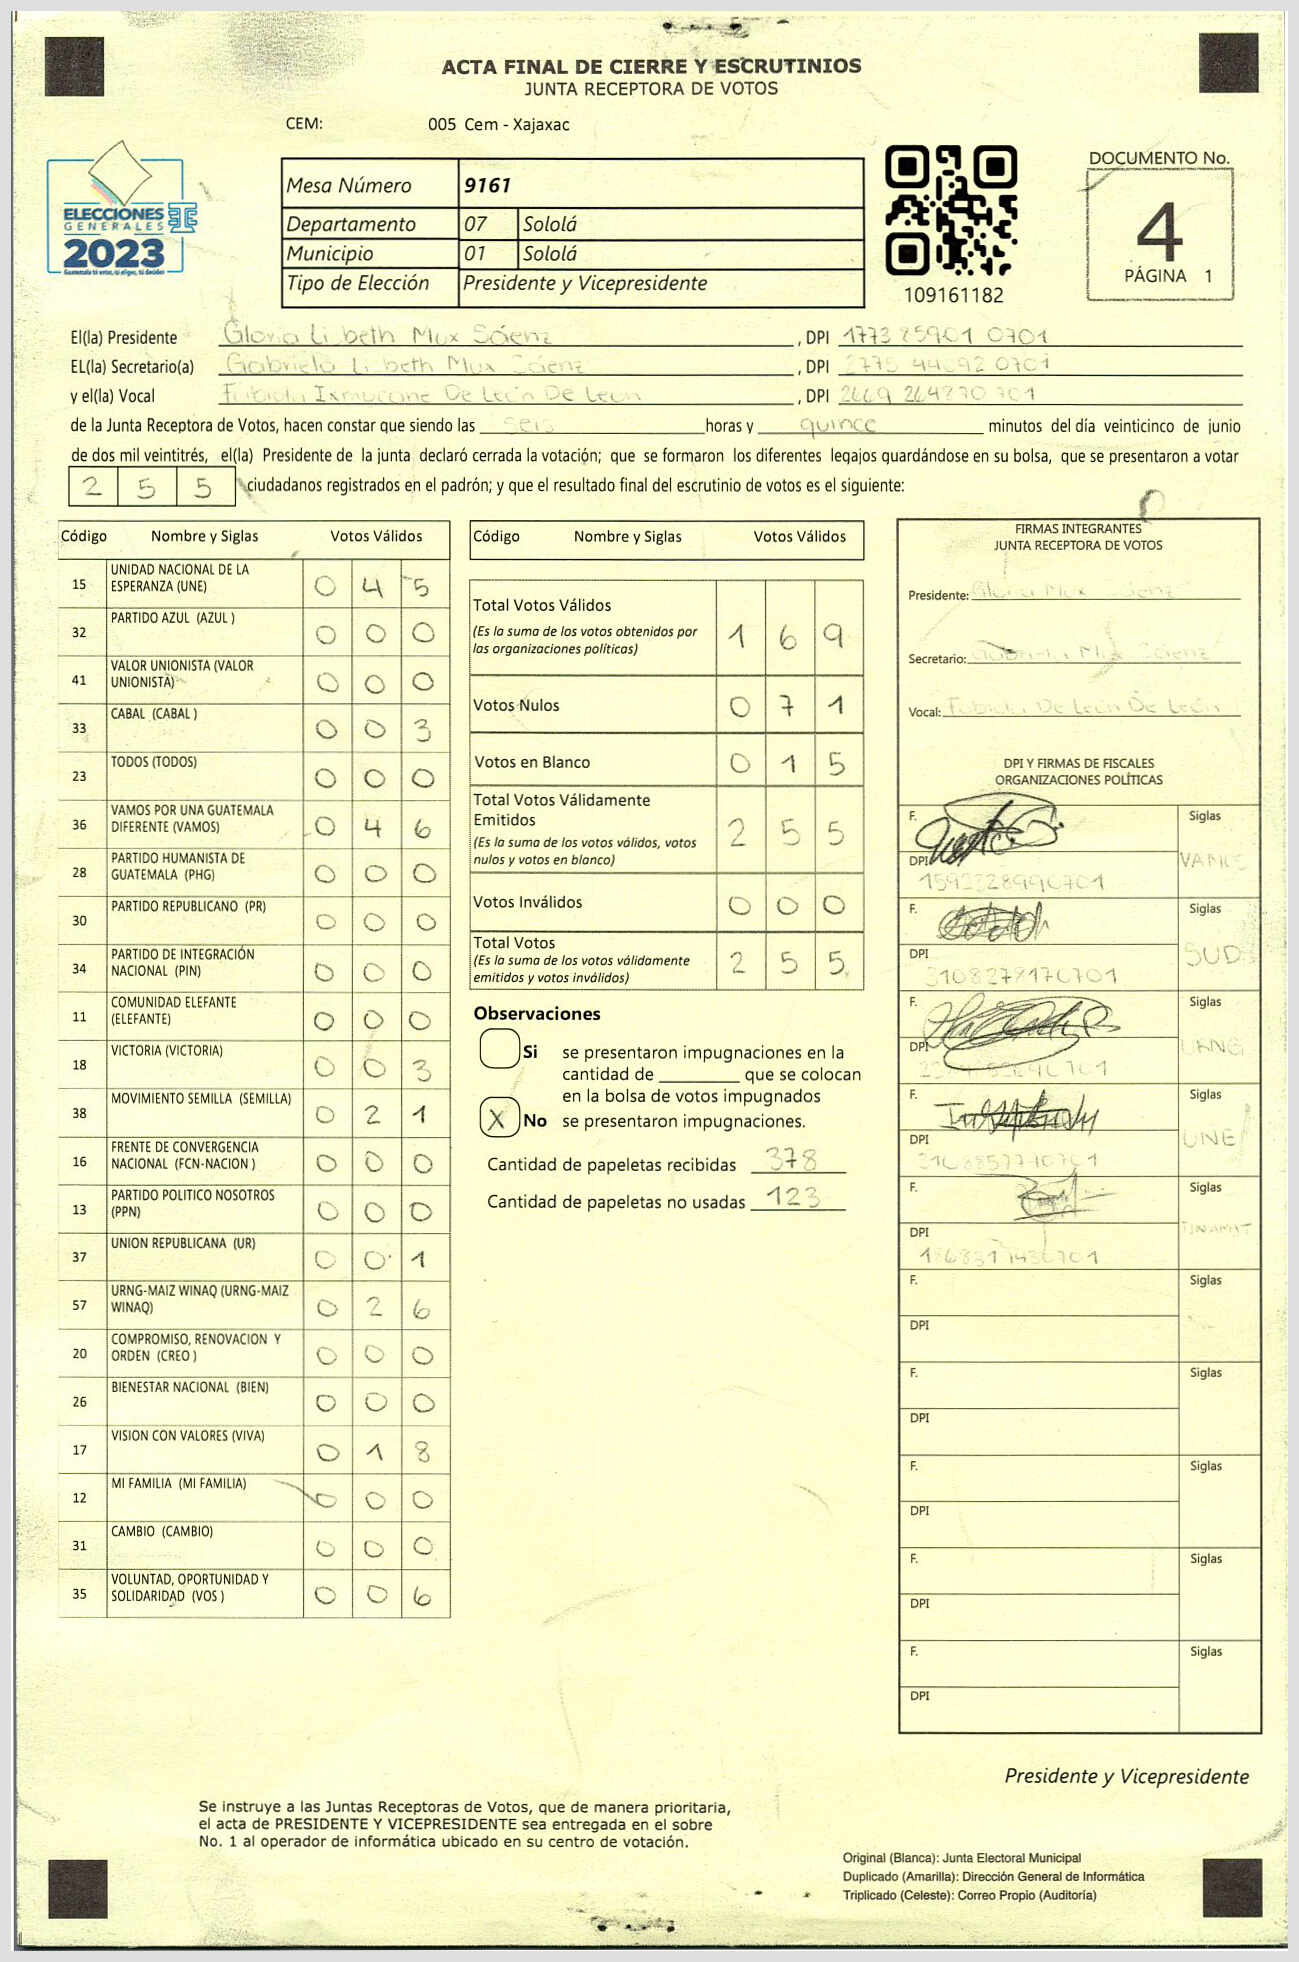 ACTA FINAL DE CIERRE Y ESCRUTINIOS
JUNTA RECEPTORA DE VOTOS
CEM: 005 Cem - Xajaxac
ELECCIONES
GENERALES
2023
Guatemala tú votas, tú eliges, tú decides
Mesa Número 9161
Departamento 07 Sololá
Municipio 01 Sololá
Tipo de Elección Presidente y Vicepresidente
109161182
DOCUMENTO No.
4
PÁGINA 1
El(la) Presidente Gloria Lisbeth Mux Sáenz, DPI 1773 85901 0701
EL(la) Secretario(a) Gabriela Lisbeth Mux Sáenz, DPI 2775 44092 0701
y el(la) Vocal Fabiola Ixmucane De León De León, DPI 2669 264870701
de la Junta Receptora de Votos, hacen constar que siendo las seis horas y quince minutos del día veinticinco de junio
de dos mil veintitrés, el(la) Presidente de la junta declaró cerrada la votación; que se formaron los diferentes legajos guardándose en su bolsa, que se presentaron a votar
2 5 5 ciudadanos registrados en el padrón; y que el resultado final del escrutinio de votos es el siguiente:
Código Nombre y Siglas Votos Válidos
15 UNIDAD NACIONAL DE LA ESPERANZA (UNE) 0 4 5
32 PARTIDO AZUL (AZUL ) 0 0 0
41 VALOR UNIONISTA (VALOR UNIONISTA) 0 0 0
33 CABAL (CABAL ) 0 0 3
23 TODOS (TODOS) 0 0 0
36 VAMOS POR UNA GUATEMALA DIFERENTE (VAMOS) 0 4 6
28 PARTIDO HUMANISTA DE GUATEMALA (PHG) 0 0 0
30 PARTIDO REPUBLICANO (PR) 0 0 0
34 PARTIDO DE INTEGRACIÓN NACIONAL (PIN) 0 0 0
11 COMUNIDAD ELEFANTE (ELEFANTE) 0 0 0
18 VICTORIA (VICTORIA) 0 0 3
38 MOVIMIENTO SEMILLA (SEMILLA) 0 2 1
16 FRENTE DE CONVERGENCIA NACIONAL (FCN-NACION ) 0 0 0
13 PARTIDO POLITICO NOSOTROS (PPN) 0 0 0
37 UNION REPUBLICANA (UR) 0 0 1
57 URNG-MAIZ WINAQ (URNG-MAIZ WINAQ) 0 2 6
20 COMPROMISO, RENOVACION Y ORDEN (CREO ) 0 0 0
26 BIENESTAR NACIONAL (BIEN) 0 0 0
17 VISION CON VALORES (VIVA) 0 1 8
12 MI FAMILIA (MI FAMILIA) 0 0 0
31 CAMBIO (CAMBIO) 0 0 0
35 VOLUNTAD, OPORTUNIDAD Y SOLIDARIDAD (VOS ) 0 0 6
Código Nombre y Siglas Votos Válidos
Total Votos Válidos 1 6 9
(Es la suma de los votos obtenidos por
las organizaciones políticas)
Votos Nulos 0 7 1
Votos en Blanco 0 1 5
Total Votos Válidamente
Emitidos 2 5 5
(Es la suma de los votos válidos, votos
nulos y votos en blanco)
Votos Inválidos 0 0 0
Total Votos 2 5 5
(Es la suma de los votos válidamente
emitidos y votos inválidos)
Observaciones
Si se presentaron impugnaciones en la
cantidad de ________ que se colocan
en la bolsa de votos impugnados
X No se presentaron impugnaciones.
Cantidad de papeletas recibidas 378
Cantidad de papeletas no usadas 123
FIRMAS INTEGRANTES
JUNTA RECEPTORA DE VOTOS
Presidente: Gloria Mux Sáenz
Secretario: Gabriela Mux Sáenz
Vocal: Fabiola De León De León
DPI Y FIRMAS DE FISCALES
ORGANIZACIONES POLÍTICAS
F. Siglas
VAMOS
DPI
F. Siglas
SUD
DPI 3108278170701
F. Siglas
URNG
DPI
F. Siglas
UNE
DPI
F. Siglas
DPI
F. Siglas
DPI
F. Siglas
DPI
F. Siglas
DPI
F. Siglas
DPI
F. Siglas
DPI
Presidente y Vicepresidente
Se instruye a las Juntas Receptoras de Votos, que de manera prioritaria,
el acta de PRESIDENTE Y VICEPRESIDENTE sea entregada en el sobre
No. 1 al operador de informática ubicado en su centro de votación.
Original (Blanca): Junta Electoral Municipal
Duplicado (Amarilla): Dirección General de Informática
Triplicado (Celeste): Correo Propio (Auditoría)